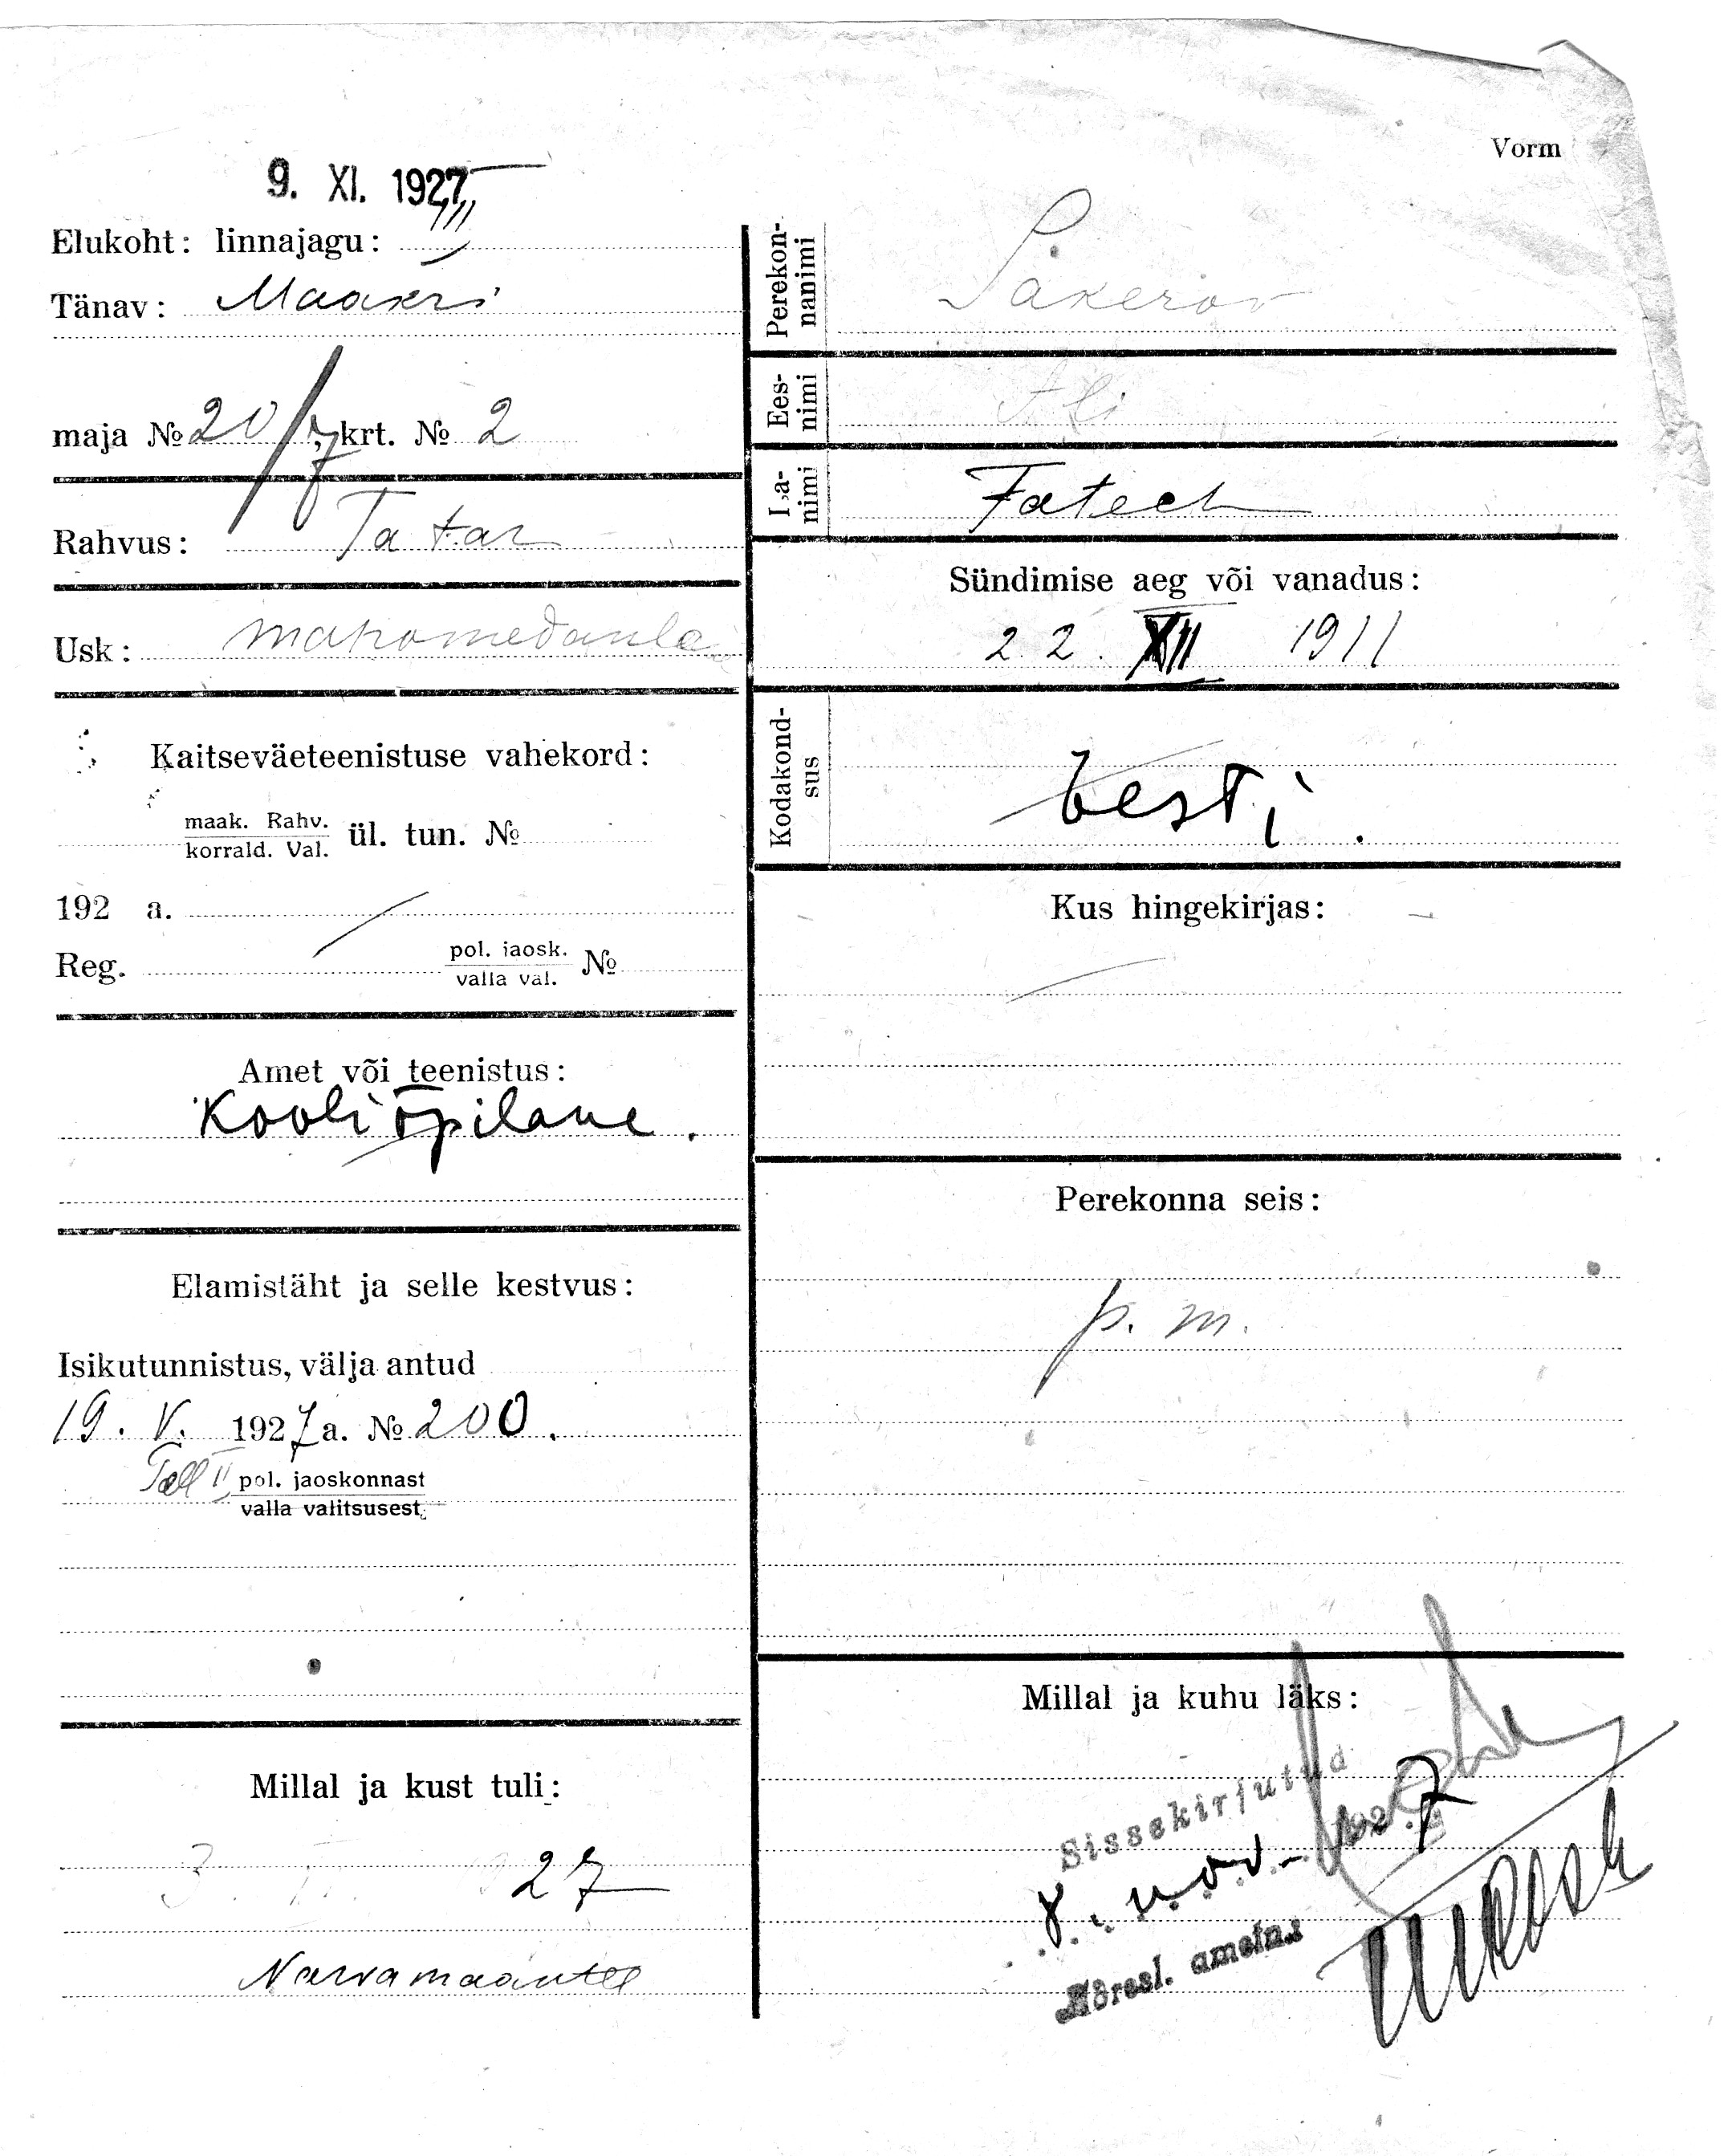 Vorm
9. XI. 1927
Elukoht: linnajagu: III
Tänav: Maakri
maja № 20/7, krt. № 2
Rahvus: Tatar
Usk: mahomedanla
Kaitseväeteenistuse vahekord:
maak. Rahv.
korrald. Val. ül. tun. №
192 a.
Reg. pol. jaosk.
valla val. №
Amet või teenistus:
Kooliõpilane.
Elamistäht ja selle kestvus:
Isikutunnistus, välja antud
19. V. 1927 a. № 200.
Tall II pol. jaoskonnast
valla valitsusest
Millal ja kust tuli:
3. 27
Narva maantee
Perekon-
nanimi Säkerov
Ees-
nimi Ali
Isa-
nimi Fatech
Sündimise aeg või vanadus:
22. XII 1911
Kodakond-
sus Eesti.
Kus hingekirjas:
Perekonna seis:
p. m.
Millal ja kuhu läks:
Sissekirjutud
8. nov. 1927
Aadresl. ametn.